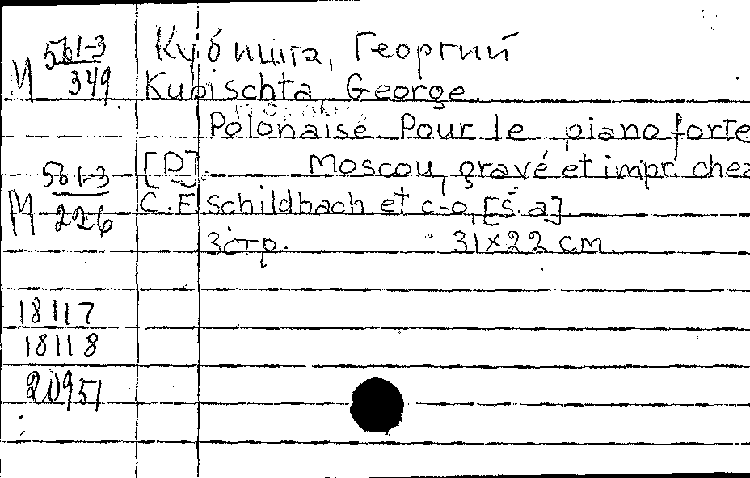 М 561-3/349
Кубишта, Георгий
Kubischta, George
Polonaise. Pour le pianoforte
[D]. Moscou, gravé et impr. chez
М 561-3/226
C. F. Schildbach et c-o, [s. a]
3 стр. 31×22 см.
18117
18118
20951